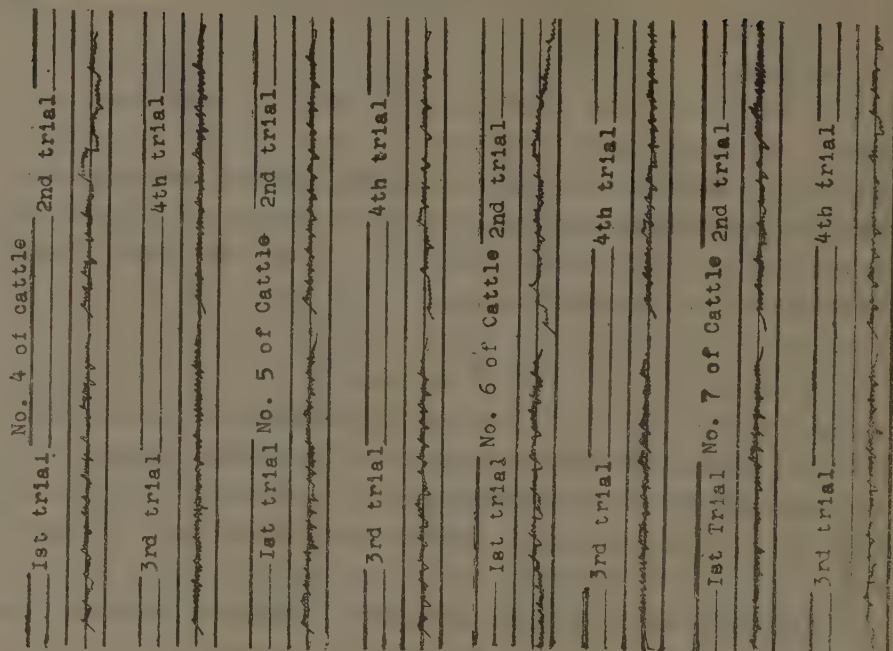 No. 4 of cattle
Ist trial 2nd trial
3rd trial 4th trial
Ist trial No. 5 of Cattle 2nd trial
3rd trial 4th trial
Ist trial No. 6 of Cattle 2nd trial
3rd trial 4th trial
Ist Trial No. 7 of Cattle 2nd trial
3rd trial 4th trial